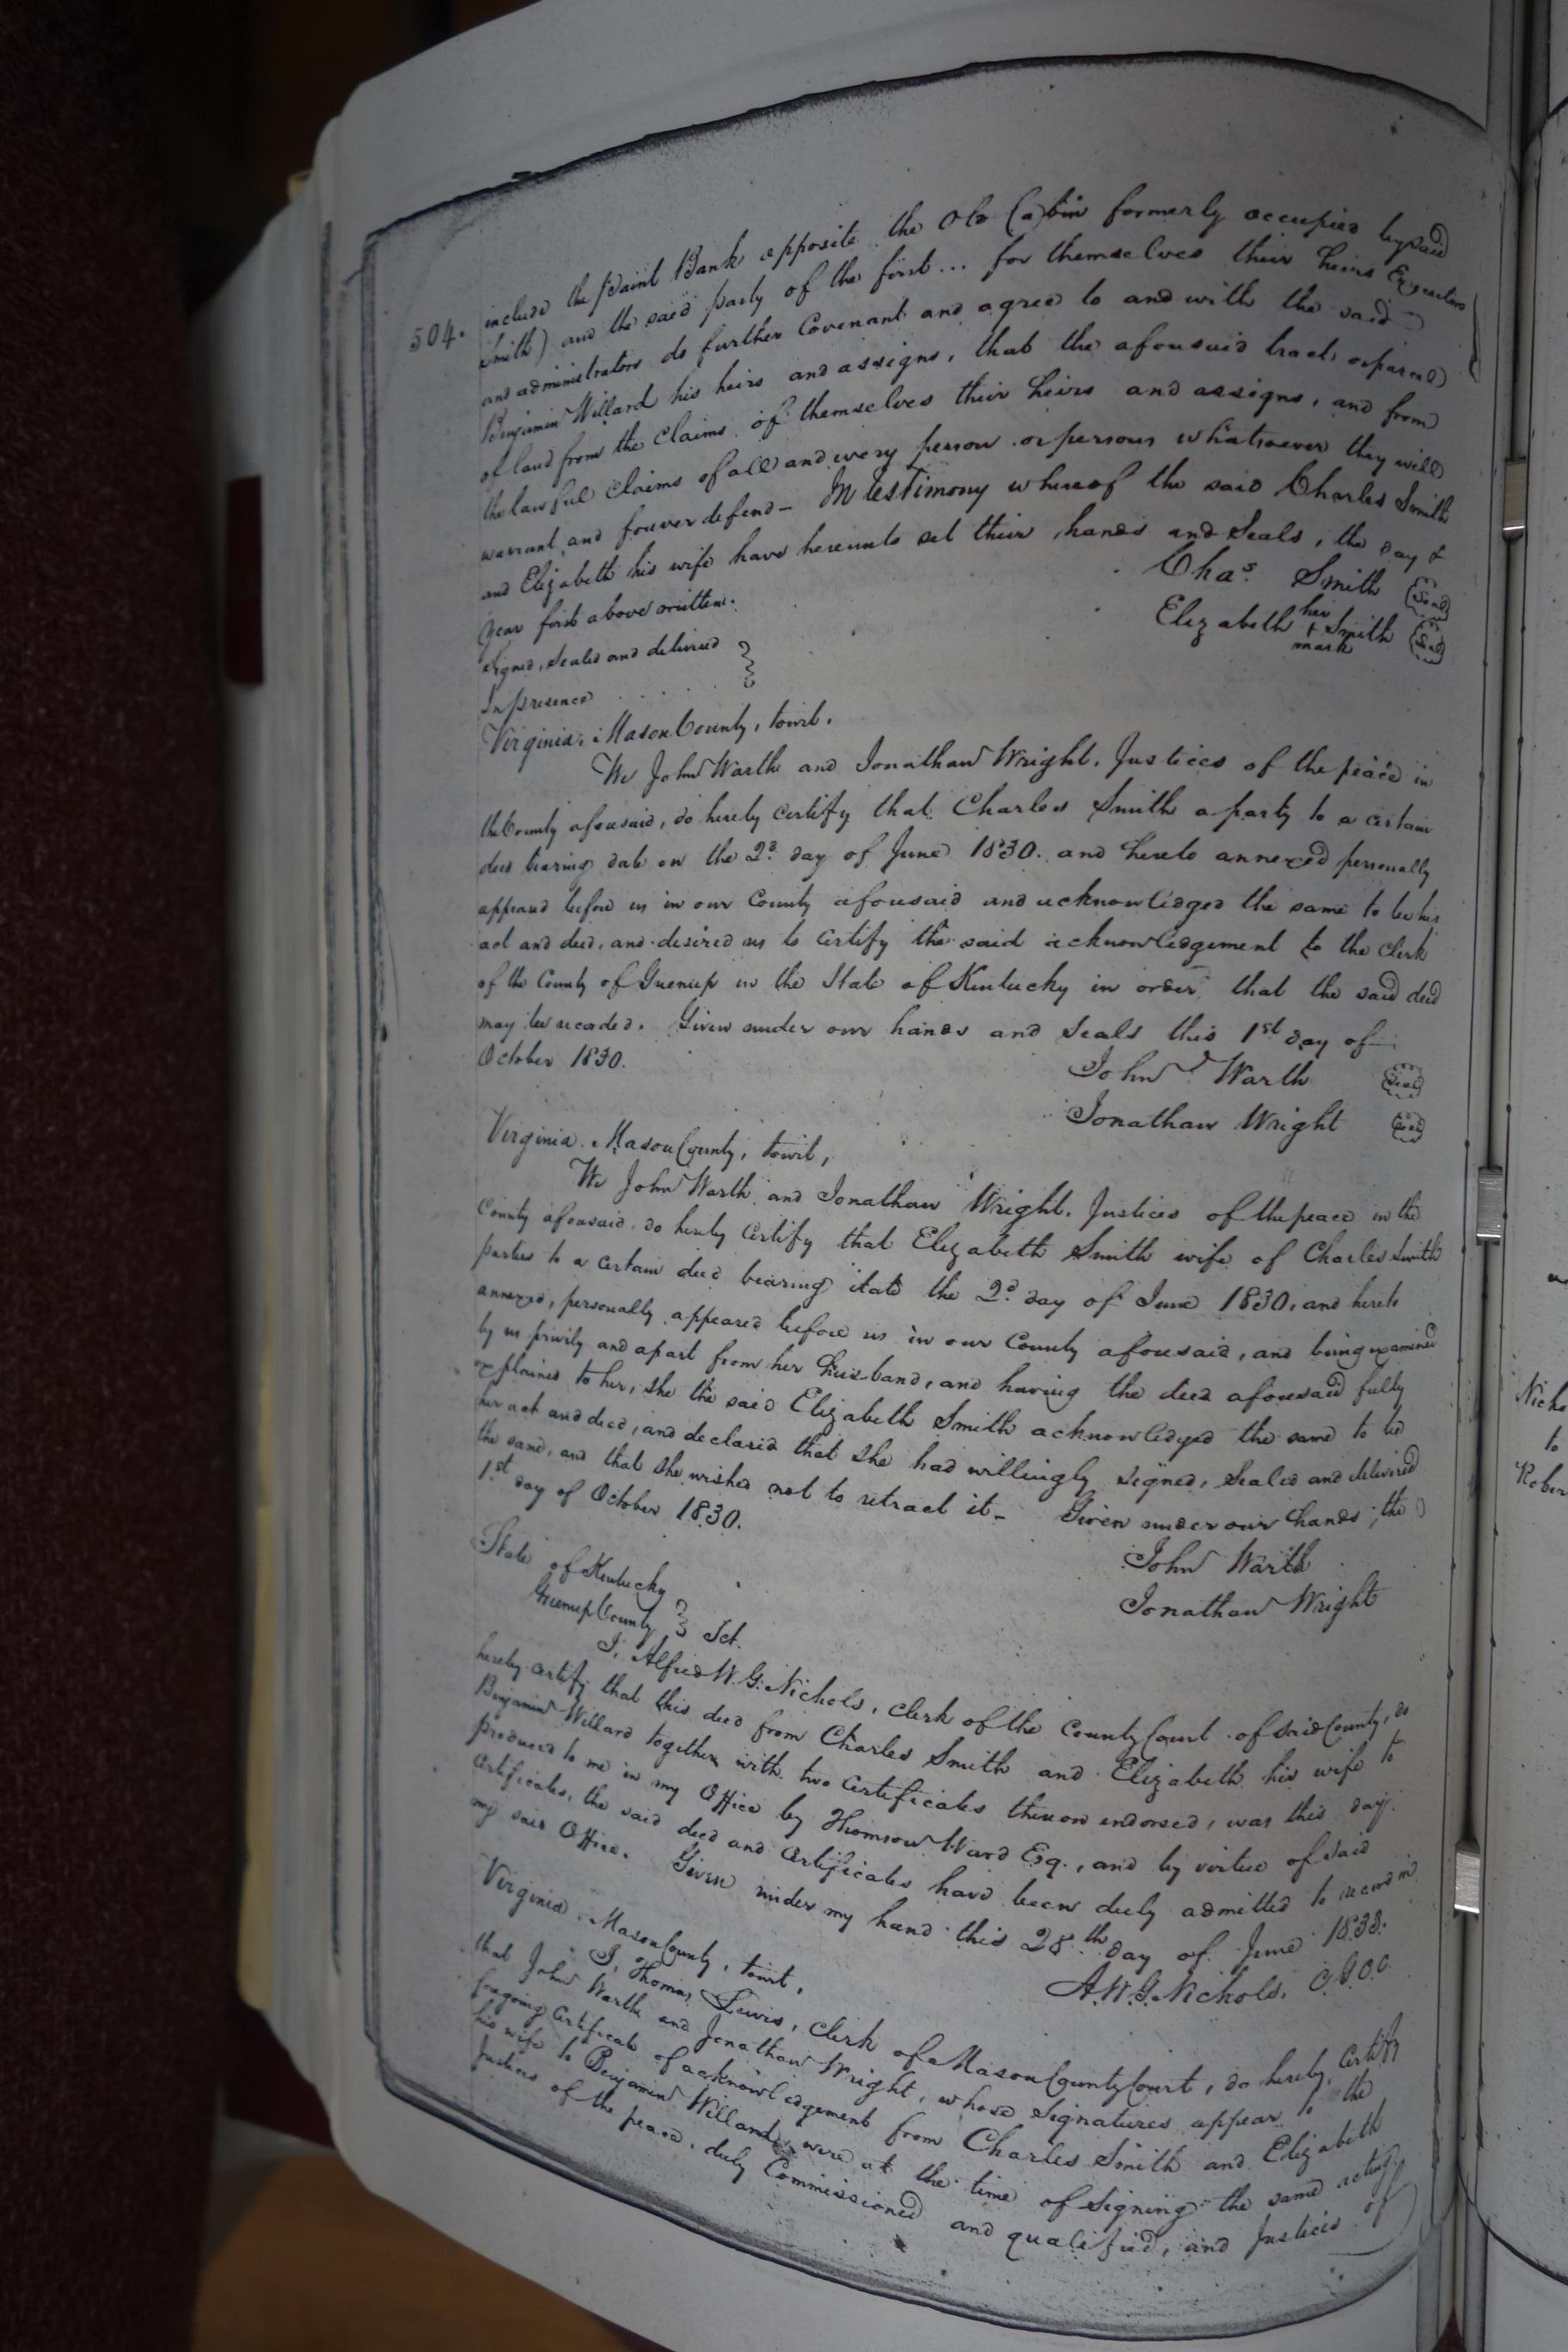 504.
include the Paint Bank opposite the Old Cabin formerly occupied by said
Smith) and the said party of the first... for themselves their heirs Executors
and administrators do further Covenant and agree to and with the said
Benjamin Willard his heirs and assigns, that the aforesaid tract or parcel
of land from the claims of themselves their heirs and assigns, and from
the lawful claims of all and every person or persons whatsoever they will
warrant and forever defend - In testimony whereof the said Charles Smith
and Elizabeth his wife have hereunto set their hands and seals, the day &
year first above written.
Chas. Smith (Seal)
Elizabeth her + mark Smith (Seal)
Signed, sealed and delivered }
In presence
Virginia, Mason County, towit.
We John Warth and Jonathan Wright, Justices of the peace in
the County aforesaid, do hereby certify that Charles Smith a party to a certain
deed bearing date on the 2d. day of June 1830. and hereto annexed personally
appeared before us in our County aforesaid and acknowledged the same to be his
act and deed, and desired us to certify the said acknowledgement to the Clerk
of the County of Greenup in the State of Kentucky in order that the said deed
may be recorded. Given under our hands and seals this 1st day of
October 1830.
John Warth (Seal)
Jonathan Wright (Seal)
Virginia. Mason County, towit,
We John Warth and Jonathan Wright. Justices of the peace in the
County aforesaid, do hereby certify that Elizabeth Smith wife of Charles Smith
parties to a certain deed bearing date the 2d. day of June 1830, and hereto
annexed, personally appeared before us in our County aforesaid, and being examined
by us privily and apart from her husband, and having the deed aforesaid fully
explained to her, she the said Elizabeth Smith acknowledged the same to be
her act and deed, and declared that she had willingly signed, sealed and delivered
the same, and that she wished not to retract it - Given under our hands, the
1st day of October 1830.
John Warth
Jonathan Wright
State of Kentucky
Greenup County } Sct.
I, Alfred W. G. Nichols, Clerk of the County Court of said County, do
hereby certify that this deed from Charles Smith and Elizabeth his wife to
Benjamin Willard together with two certificates thereon endorsed, was this day
produced to me in my Office by Thomson Ward Esq., and by virtue of said
Certificates, the said deed and Certificates have been duly admitted to record in
my said Office. Given under my hand this 28th day of June 1833.
A. W. G. Nichols, C.G.C.C
Virginia, Mason County, towit,
I, Thomas Lewis, Clerk of Mason County Court, do hereby certify
that John Warth and Jonathan Wright, whose signatures appear to the
foregoing certificate of acknowledgement from Charles Smith and Elizabeth
his wife to Benjamin Willard, were at the time of signing the same acting
Justices of the peace, duly Commissioned and qualified, and Justices of
Nicho
to
Rober